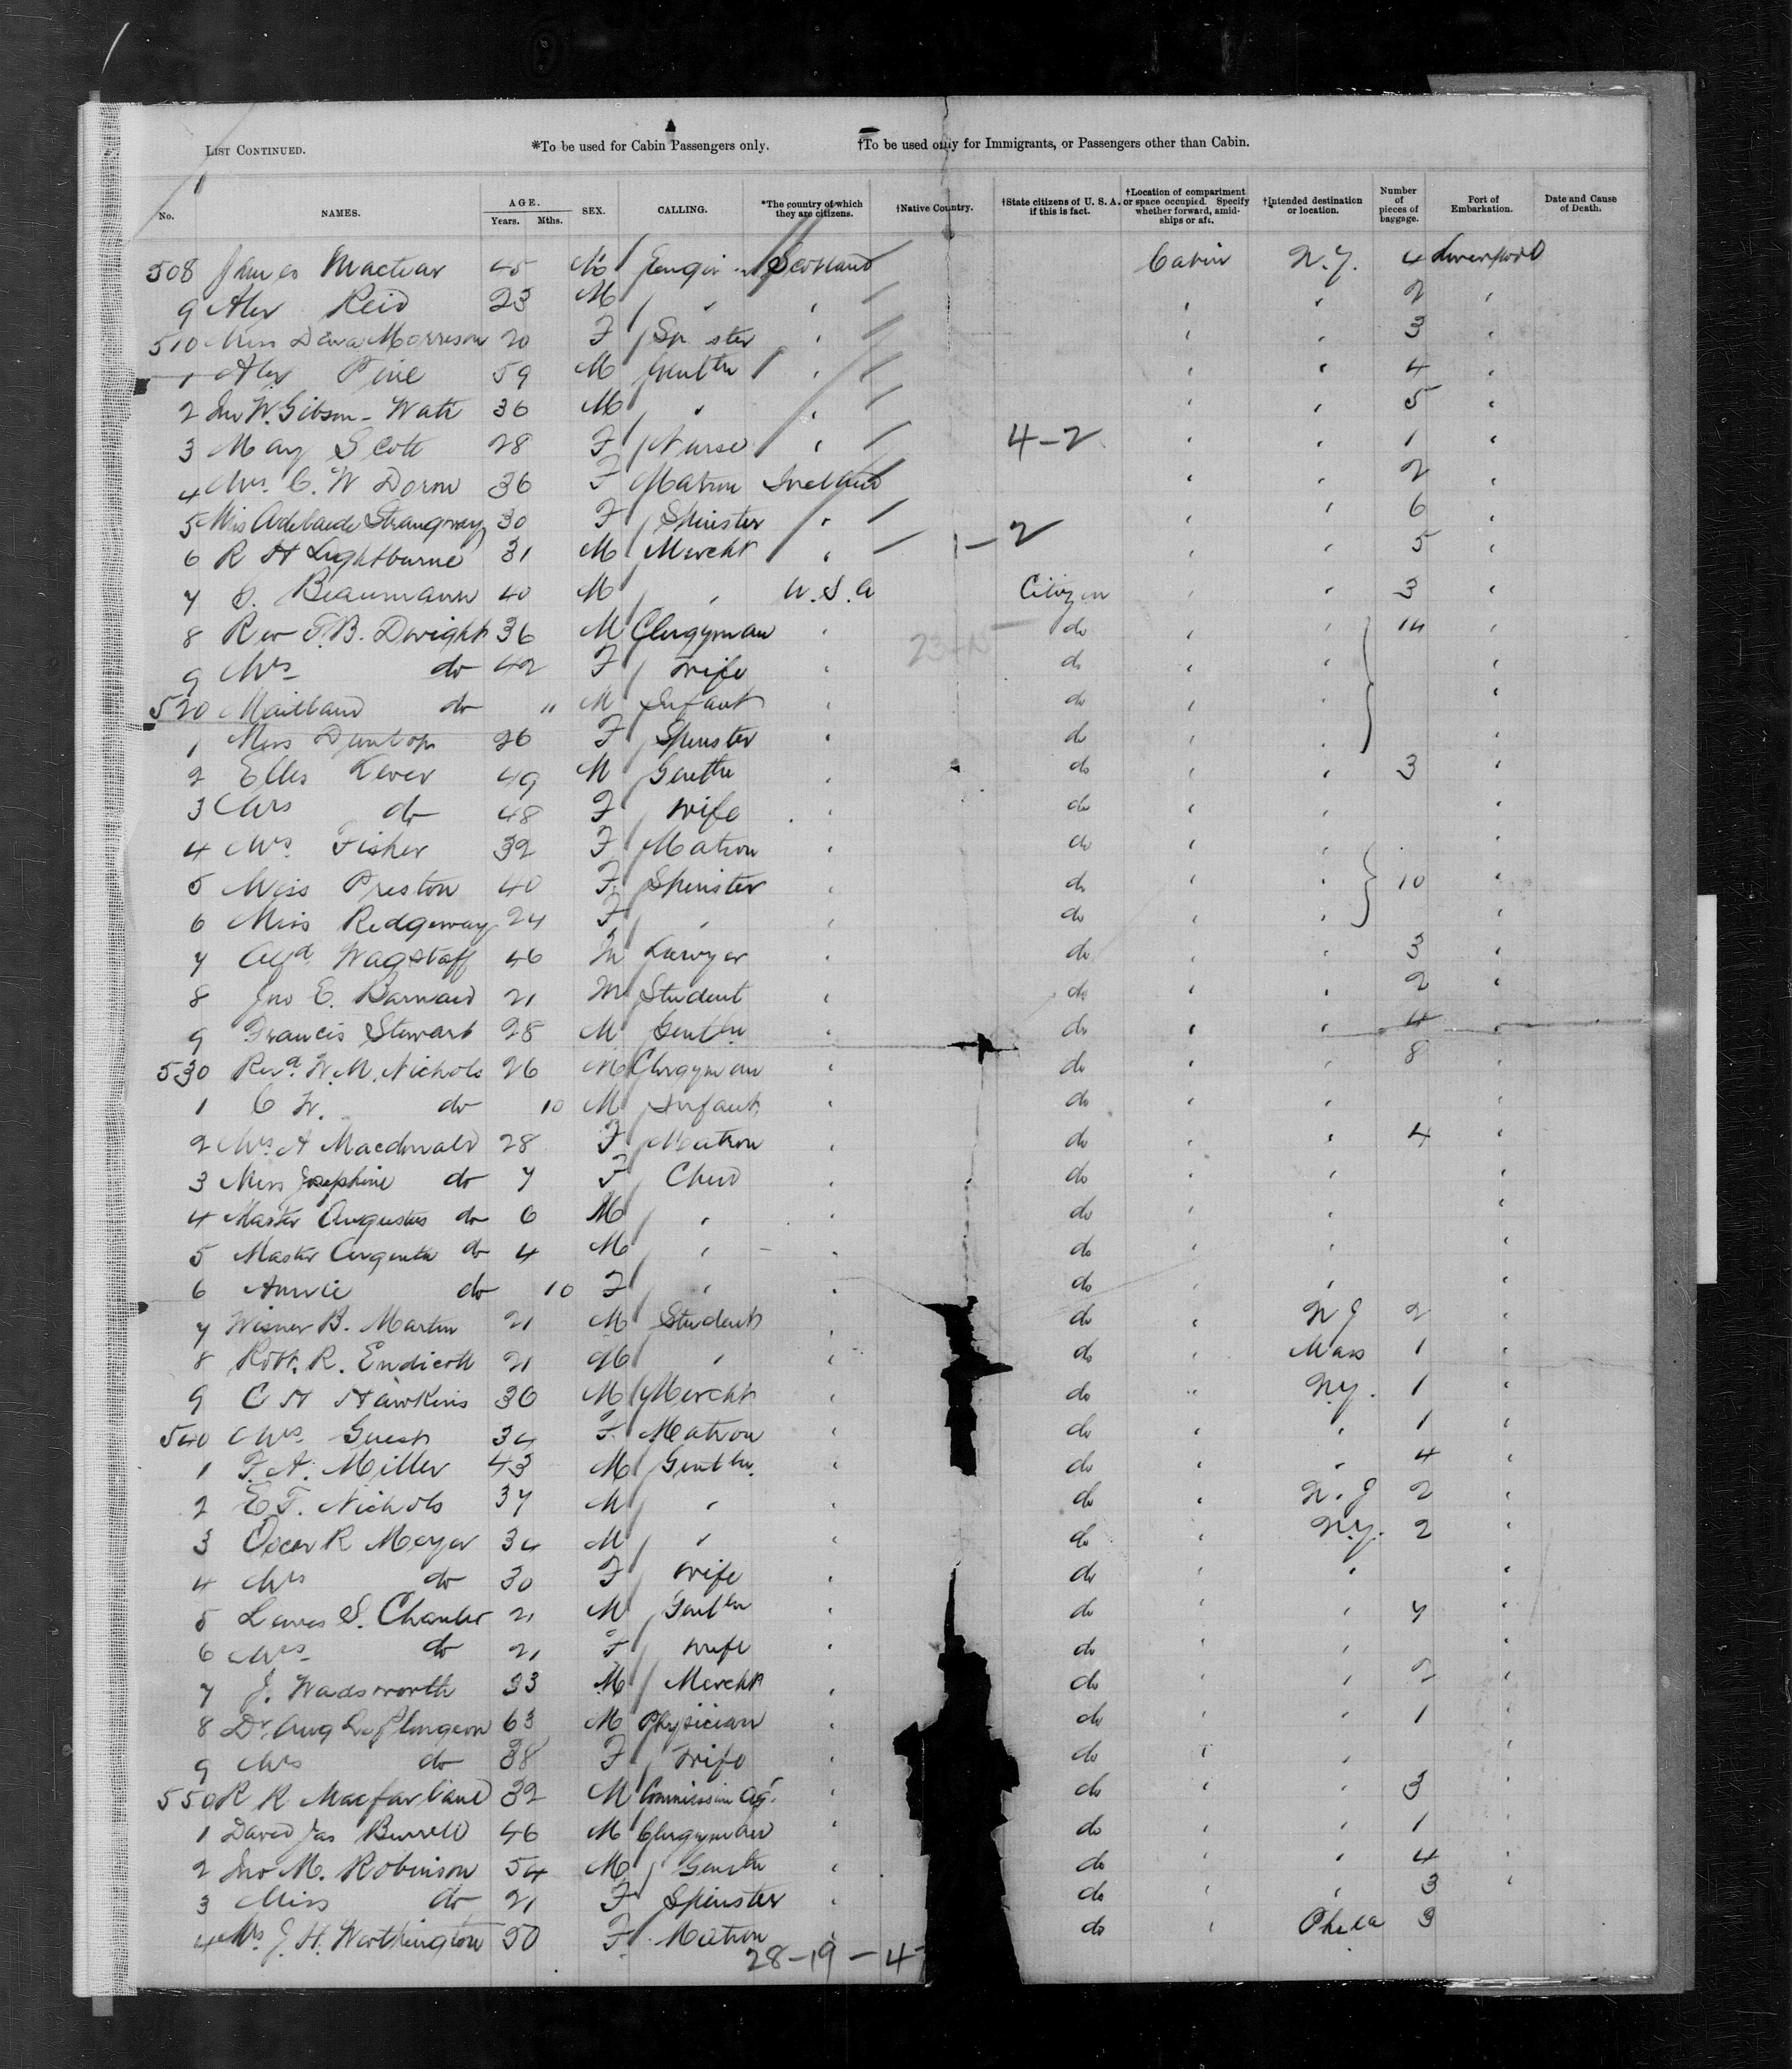 LIST CONTINUED. *To be used for Cabin Passengers only. †To be used only for Immigrants, or Passengers other than Cabin.
No. NAMES. AGE. Years. Mths. SEX. CALLING. *The country of which they are citizens. †Native Country. †State citizens of U. S. A. if this is fact. †Location of compartment or space occupied. Specify whether forward, amidships or aft. †Intended destination or location. Number of pieces of baggage. Port of Embarkation. Date and Cause of Death.
508 James Mactear 45 M Scotland Cabin N.Y. 4 Liverpool
9 Alex Reid 23 M " " " " 2 "
510 Miss Morrison 20 F " " " 3 "
1 Alex Pirie 59 M Gentln " " " 4 "
2 Jno W. Gibson-Watt 36 M " " " " 5 "
3 Mary Scott 28 F Nurse " 4-2 " " 1 "
4 Mrs. C. W Doran 36 F Matron Ireland " " 2 "
5 Miss Adelaide Strangways 30 F Spinster " " " 6 "
6 R H Lightburne 31 M Mercht " 1-2 " " 5 "
7 S. Beaumann 40 M " U.S.A Citizen " " 3 "
8 Rev T.B. Dwight 36 M Clergyman " do " " 14 "
9 Mrs do 42 F Wife " do " " "
520 Maitland do 11 M Infant " do " " "
1 Miss Dunlop 26 F Spinster " do " " "
2 Ellis 49 M Gentln " do " " 3 "
3 Mrs do 48 F Wife " do " " "
4 Mrs. Fisher 32 F Matron " do " " "
5 Miss Preston 40 F Spinster " do " " 10 "
6 Miss Redgeway 24 F " " do " " "
7 Alfd. Wagstaff 46 M Lawyer " do " " 3 "
8 Jno E. Barnard 21 M Student " do " " 2 "
9 Francis Stewart 28 M Gentln " do " " 4 "
530 Revd. W.M. Nichols 26 M Clergyman " do " " 8 "
1 C W. do 10 M Infant " do " " "
2 Mrs A Macdonald 28 F Matron " do " " 4 "
3 Miss Josephine do 7 F Child " do " " "
4 Master Augustus do 6 M " " do " " "
5 Master do 4 M " " do " " "
6 Annie do 10 F " " do " " "
7 Wisner B. Martin 21 M Student " do " N J 2 "
8 Robt. R. Endicott 21 M " " do " Mass 1 "
9 C H Hawkins 36 M Mercht " do " N.Y. 1 "
540 Mrs. Guest 34 F Matron " do " " 1 "
1 F. A. Miller 43 M Gentln. " do " " 4 "
2 E T. Nichols 37 M " " do " N.J 2 "
3 Oscar R Meyer 34 M " " do " N.Y. 2 "
4 Mrs do 30 F Wife " do " " "
5 Lewis S. Chanler 21 M Gentln " do " " 7 "
6 Mrs do 21 F Wife " do " " "
7 J. Wadsworth 33 M Mercht " do " " 2 "
8 Dr. Aug Le Plongeon 63 M Physician " do " " 1 "
9 Mrs do 38 F Wife " do " " "
550 R R Macfarland 32 M Commission Agt. " do " " 3 "
1 David Jas Burrell 46 M Clergyman " do " " 1 "
2 Jno M. Robinson 54 M Gentln " do " " 4 "
3 Miss do 21 F Spinster " do " " 3 "
4 Mrs J. H. Worthington 50 F Matron " do " Phila 3
28-19-47